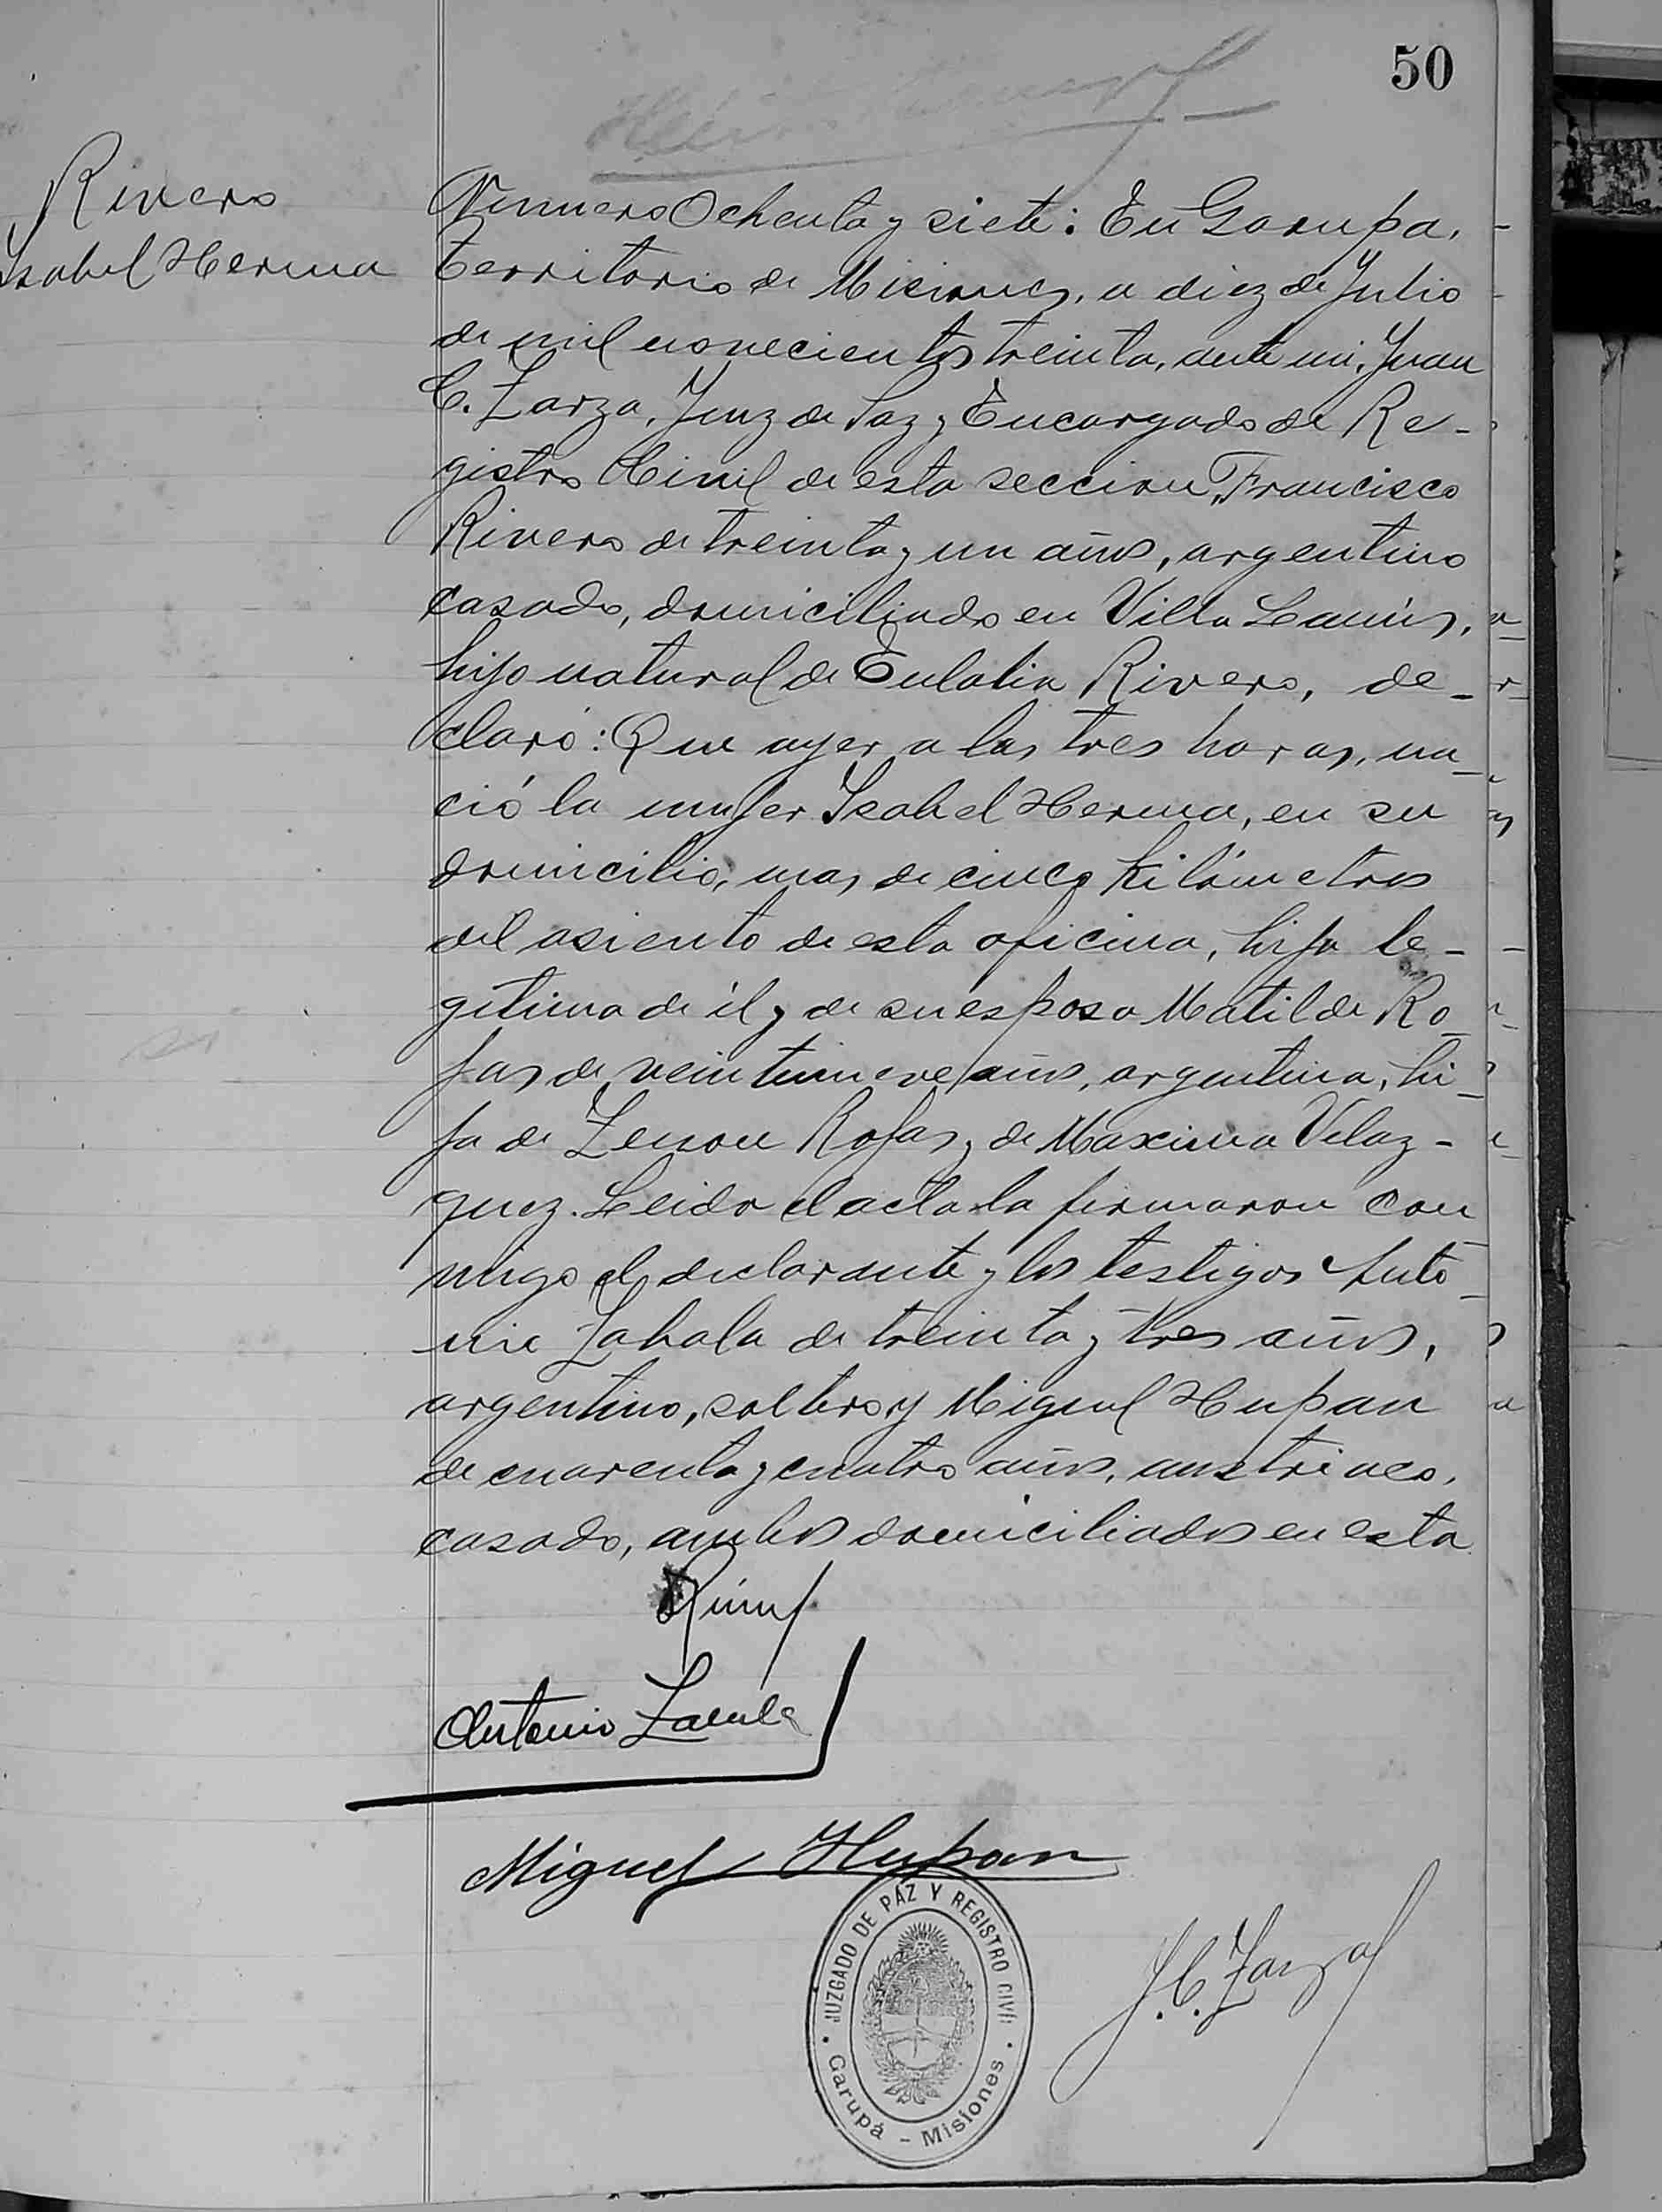 50
Rivero
Isabel Herma
Numero Ochenta y siete: En Garupa,
territorio de Misiones, a diez de Julio
de mil novecientos treinta, ante mi, Juan
C. Zarza, Juez de Paz y Encargado de Re-
gistro Civil de esta seccion, Francisco
Rivero de treinta y un años, argentino
casado, domiciliado en Villa Lanús,
hijo natural de Eulalia Rivero, de-
claró: Que ayer, a las tres horas, na-
ció la mujer Isabel Herma, en su
domicilio, mas de cinco kilómetros
del asiento de esta oficina, hija le-
gitima de él y de su esposa Matilde Ro-
jas de veintinueve años, argentina, hi-
ja de Zenon Rojas y de Maxima Velaz-
quez. Leido el acta la firmaron con
migo el declarante y los testigos Anto-
nio Zabala de treinta y tres años,
argentino, soltero y Miguel Hupan
de cuarenta y cuatro años, austriaco,
casado, ambos domiciliados en esta
Antonio Zavala
Miguel Hupan
JUZGADO DE PAZ Y REGISTRO CIVIL
Garupá - Misiones
J. C. Zarza